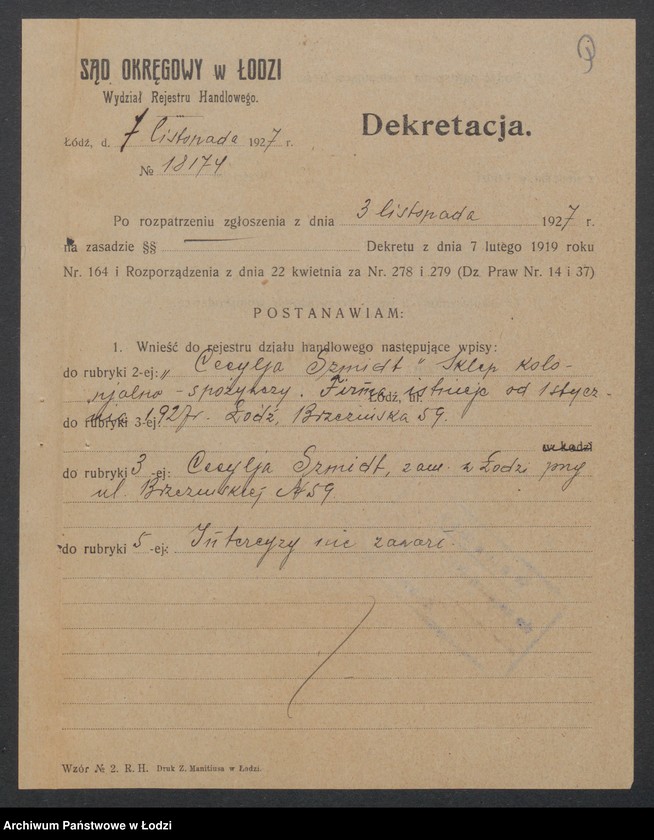 SĄD OKRĘGOWY w ŁODZI
Wydział Rejestru Handlowego.
Łódź, d. 7 listopada 1927 r.
№ 18174
Dekretacja.
Po rozpatrzeniu zgłoszenia z dnia 3 listopada 1927 r.
na zasadzie §§ — Dekretu z dnia 7 lutego 1919 roku
Nr. 164 i Rozporządzenia z dnia 22 kwietnia za Nr. 278 i 279 (Dz. Praw Nr. 14 i 37)
POSTANAWIAM:
1. Wnieść do rejestru działu handlowego następujące wpisy:
do rubryki 2-ej: „Cecylja Szmidt" Sklep kolo-
njalno-spożywczy. Firma istnieje od 1 stycz-
Łódź, ul.
do rubryki 3-ej: nia 1927 r. Łódź, Brzezińska 59.
w Łodzi
do rubryki 3-ej: Cecylja Szmidt, zam. w Łodzi przy
ul. Brzezińskiej № 59
do rubryki 5-ej: Intercyzy nie zawarł.
Wzór № 2. R. H. Druk Z. Manitiusa w Łodzi.
Archiwum Państwowe w Łodzi